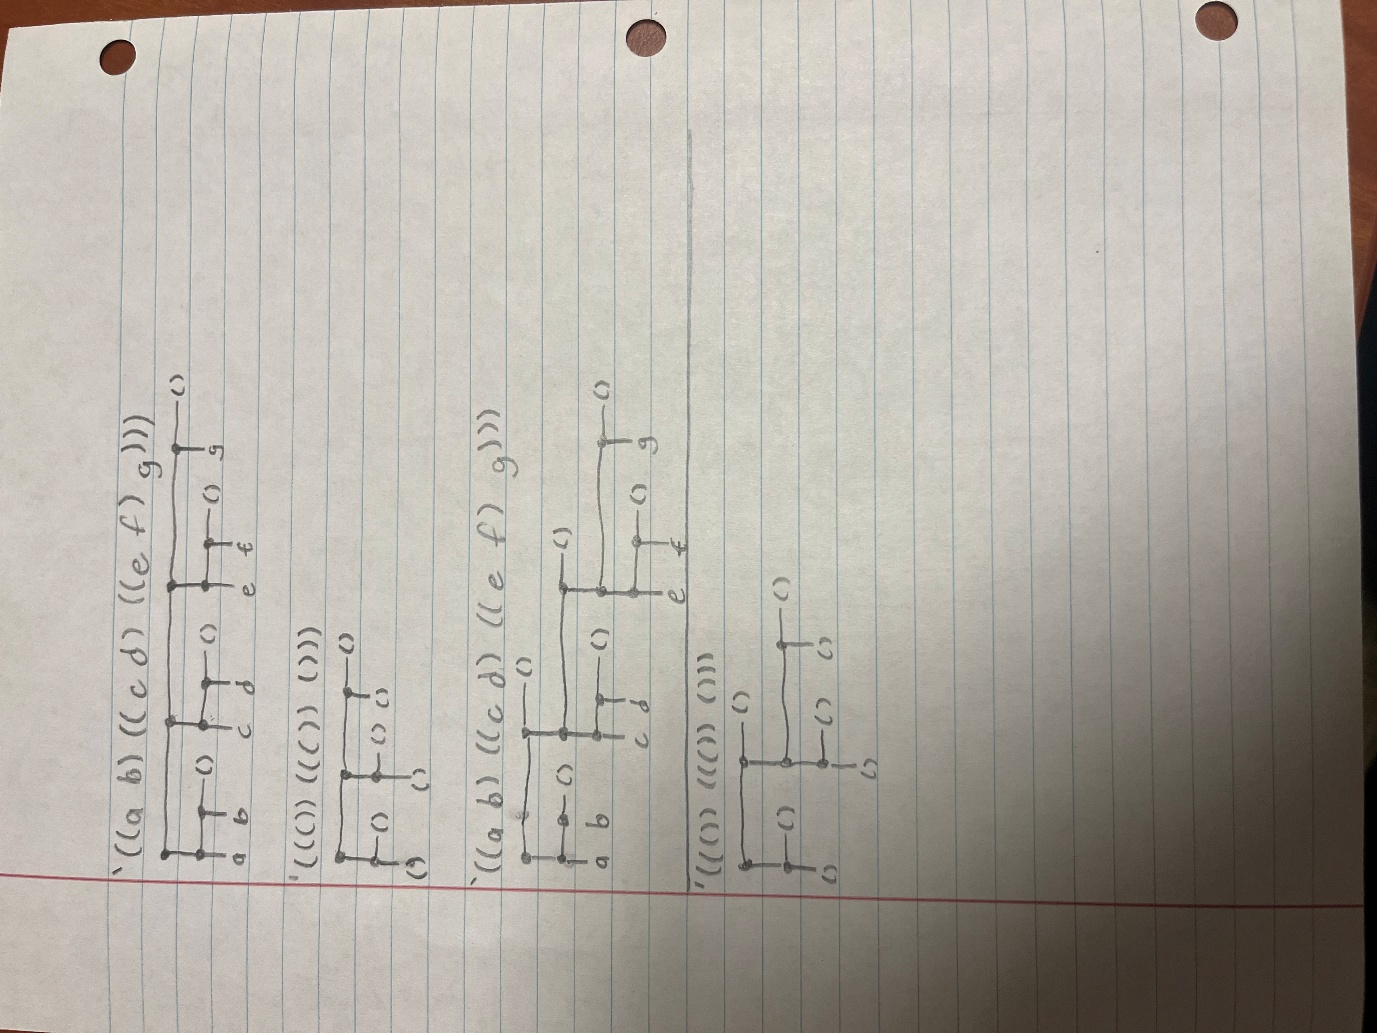 '((a b) ((c d) ((e f) g)))
()
() () () g
a b c d e f
'((()) ((()) ()))
()
() () ()
() ()
'((a b) ((c d) ((e f) g)))
()
() ()
a b () ()
c d () g
e f
'((()) ((()) ()))
()
() ()
() () ()
()